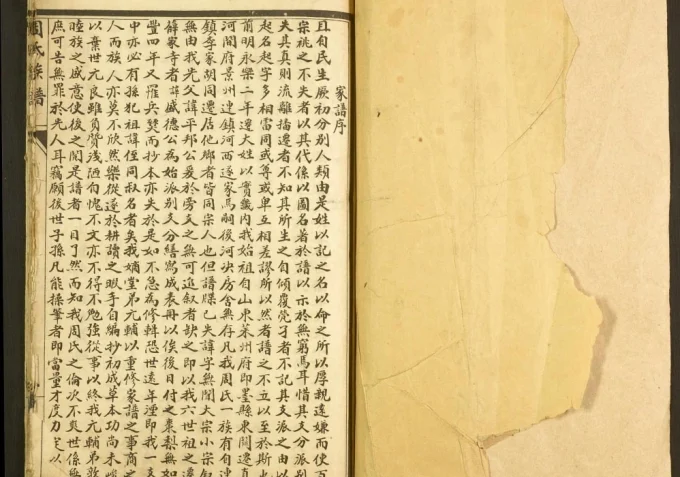 家譜序
且自民生厥初分別人類由是姓以記之名以命之所以厚親遠嫌而使百
宗祧之不失者以其代係以圖名著於譜以示於無窮焉耳惜其支分派別
失其真則流離播遷者不知其所生之自傾覆焭孑者不記其支派之由以
起名起字多相雷同或等或卑互相差謬所以然者譜之不立以至於斯
前明永樂二年遷大姓以實畿內我始祖自山東萊州府即墨縣東關遷
河間府景州連鎮河西逐家馬嗣後河決房舍無存凡我周氏一族有自連
鎮季家胡同遷居他鄉者皆同宗人也但譜牒已失諱字無聞大宗小宗
無由我先父諱平邦公爰於旁支之無可追叙者缺之即以我六世祖之
薛家寺者諱盛德公為始派別支分繕寫成表冊以俟後日付之棗梨無如
豐四年又罹兵燹而抄本亦失於是如不急為修輯恐世遠年湮即我一支
中亦必有孫犯祖諱侄同叔名者矣我嫡堂弟亢輔以重修家譜之事商之
人而族人亦莫不欣然樂從遂於耕讀之暇手自編抄初成草本功尚未
以棄世亢良雖負質淺陋自愧不文亦不得不勉強從事以終我亢輔弟敦
睦族之盛意使後之閱是譜者一目了然而知我周氏之倫次不爽世係無
庶可告無罪於先人耳竊願後世子孫凡能操筆者即當量才度力定以
周氏族譜